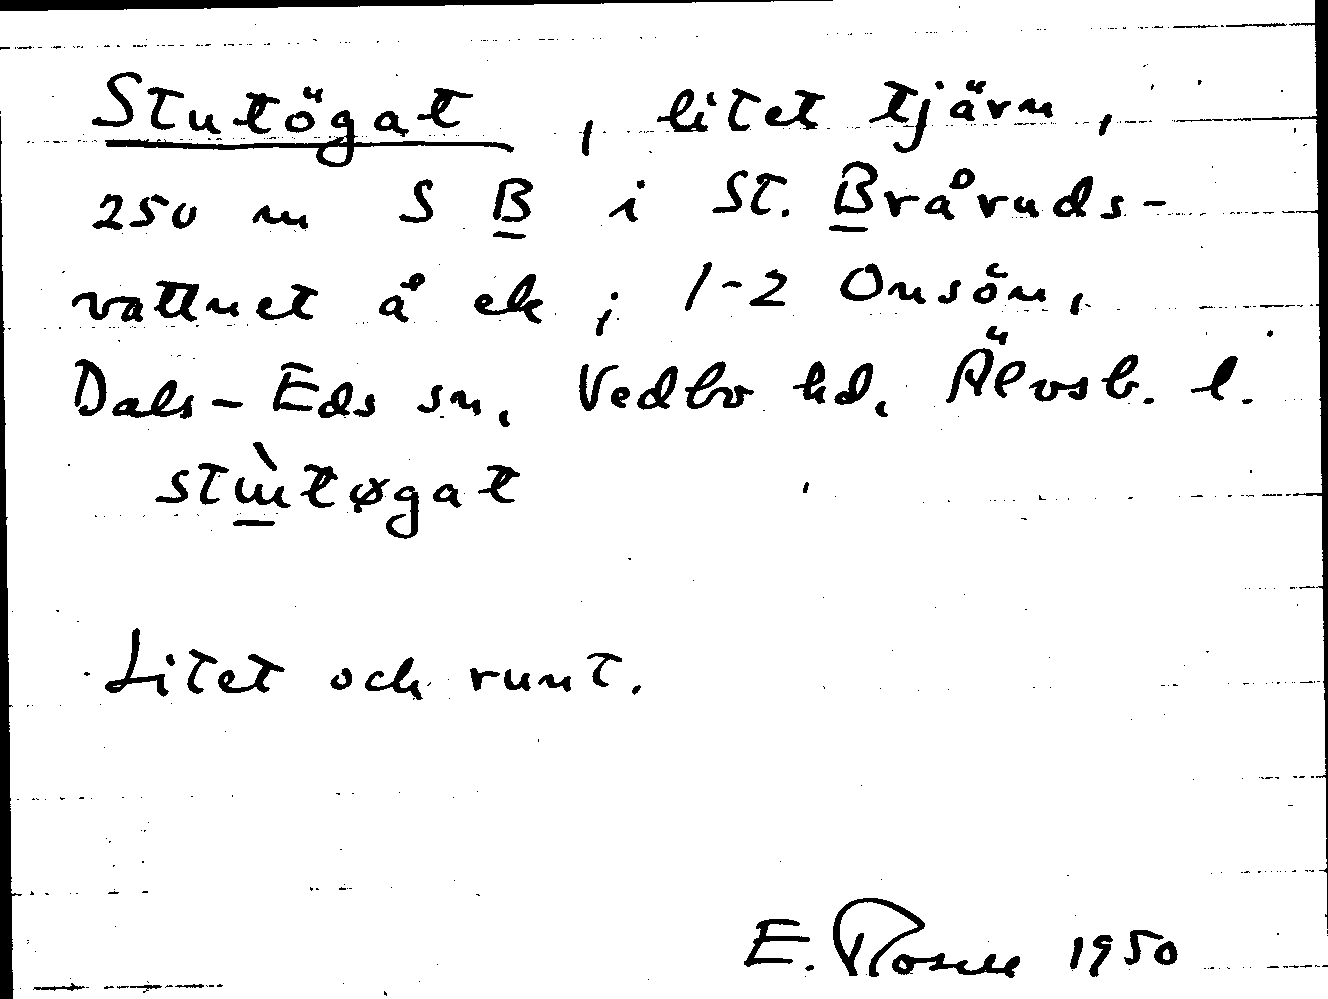 Stutögat, litet tjärn,
250 m S B i St. Bråruds-
vattnet å ek; 1-2 Onsön,
Dals-Eds sn. Vedbo hd. Älvsb. l.
Litet och runt.
E. Rosell 1950